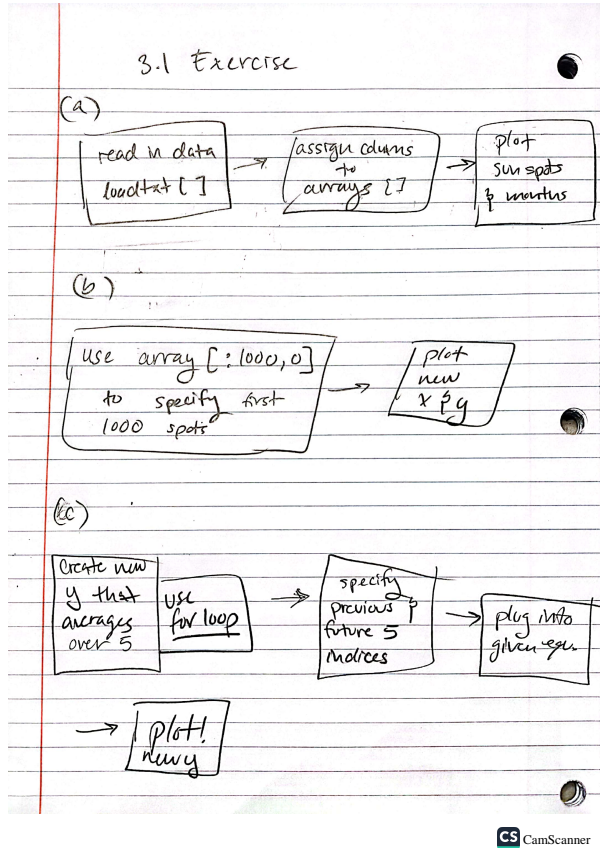 3.1 Exercise
(a)
read in data
loadtxt [ ]
assign colums
to
arrays []
plot
sun spots
& months
(b)
use array [:1000,0]
to specify first
1000 spots
plot
new
x & y
(c)
Create new
y that
averages
over 5
use
for loop
specify
previous &
future 5
indices
plug into
given eqn.
plot!
new y
CS CamScanner